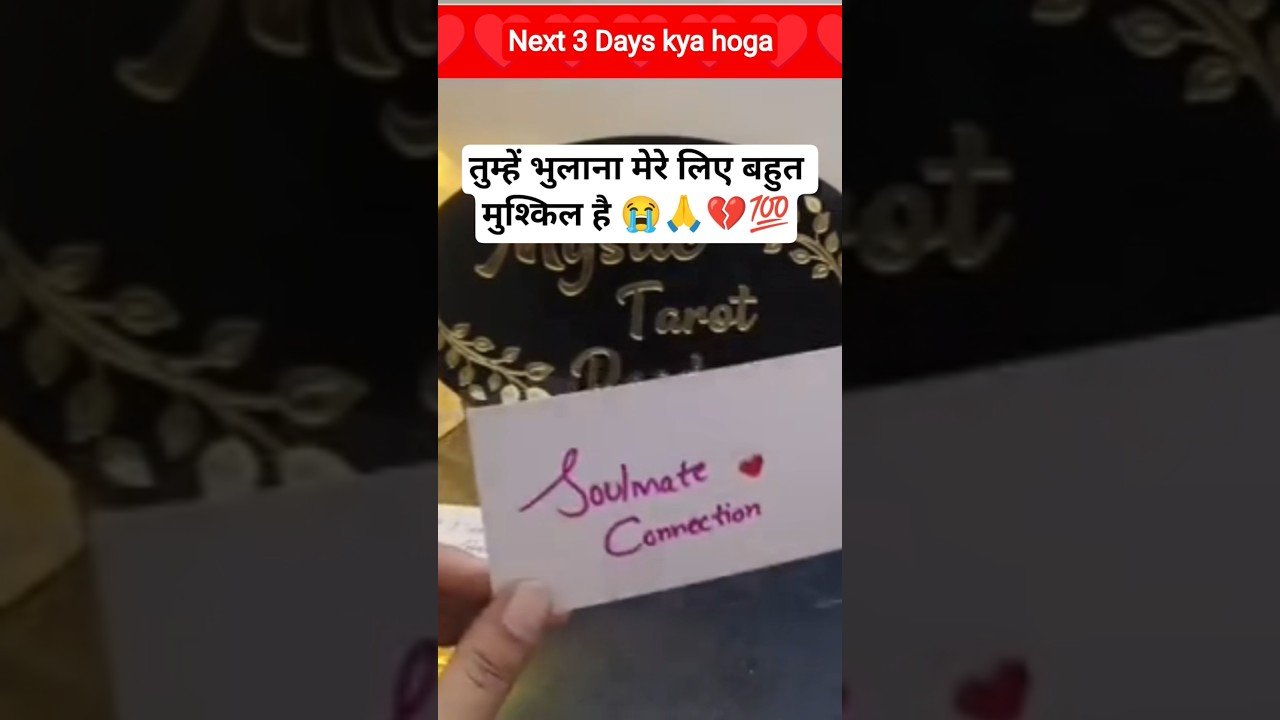 Next 3 Days kya hoga
तुम्हें भुलाना मेरे लिए बहुत
मुश्किल है 😭🙏💔💯
Mystic
Tarot
Soulmate ❤
Connection